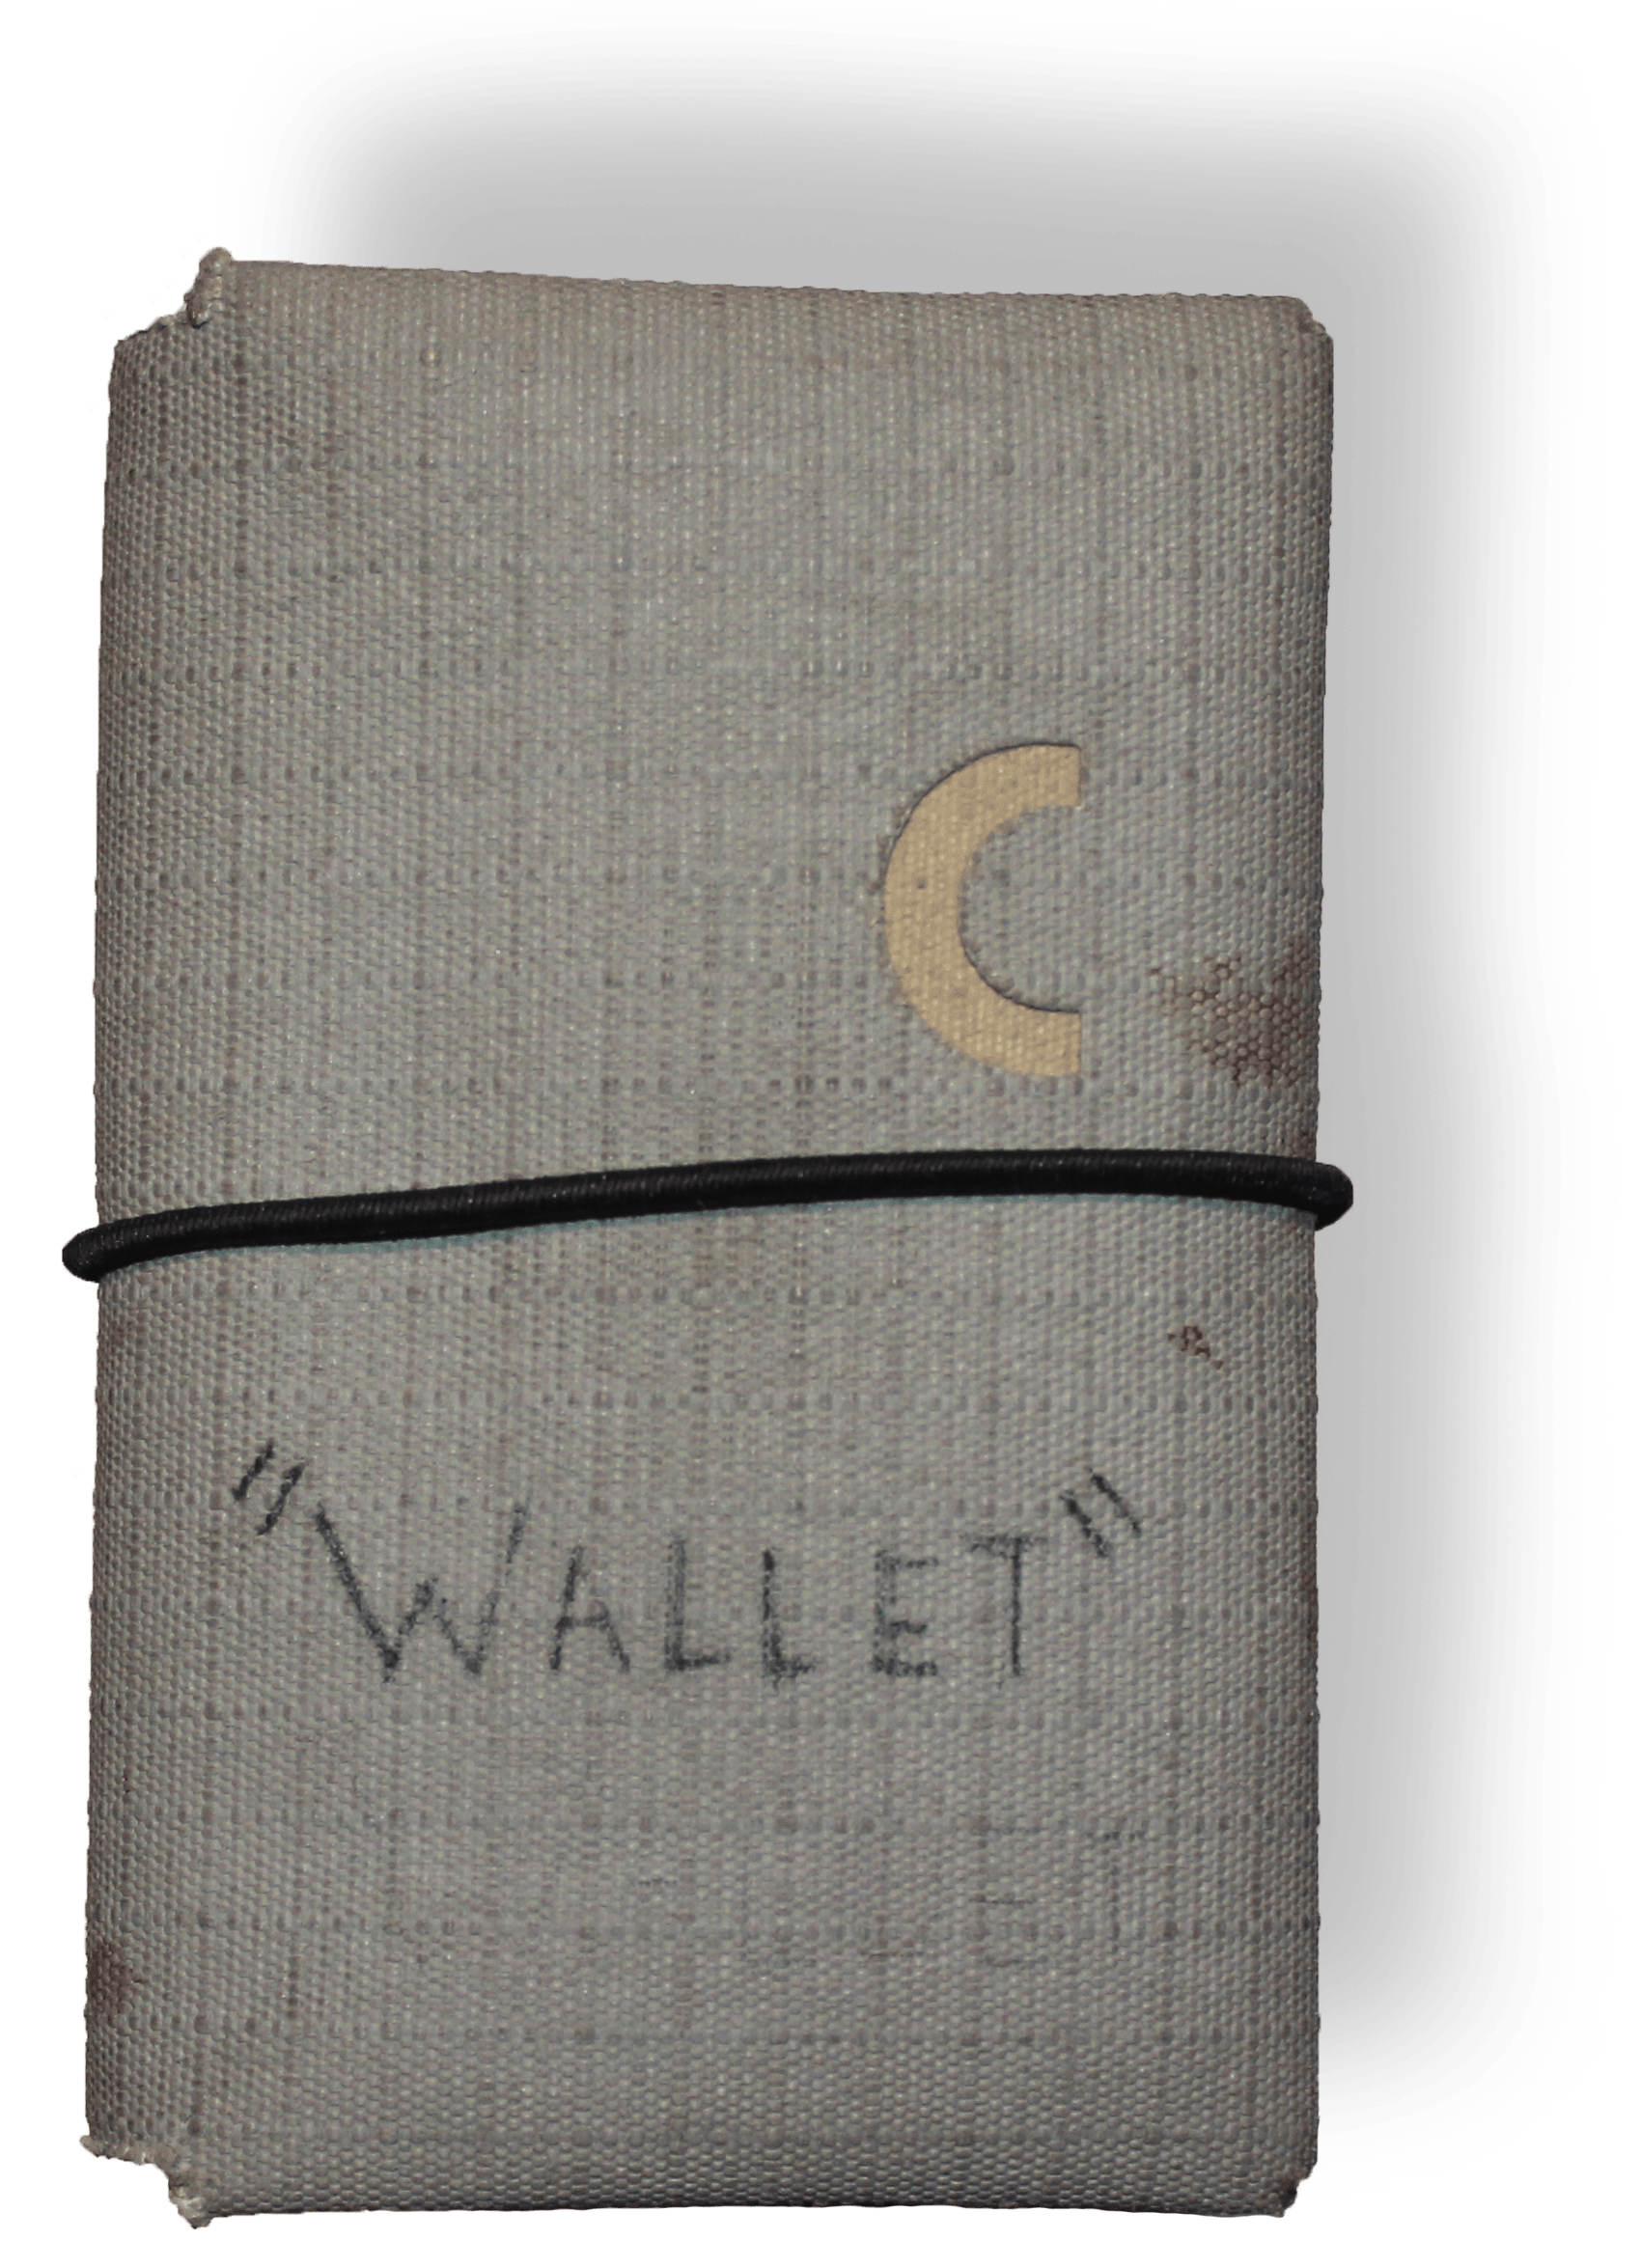 C
"WALLET"